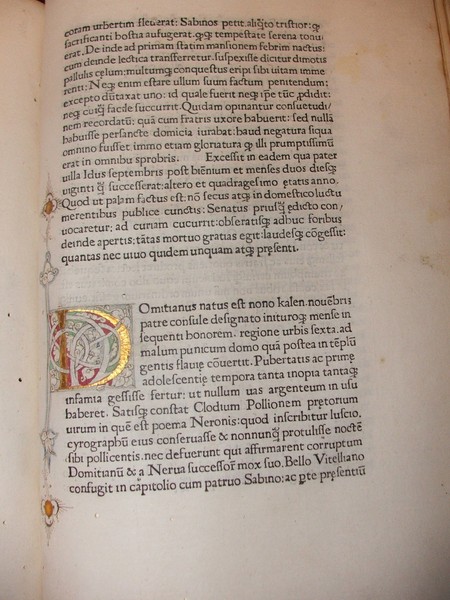 coram urbertim fleuerat: Sabinos petit aliq̃to tristior: ꝙ
sacrificanti hostia aufugerat. ꝙq; tempestate serena tonu/
erat. De inde ad primam statim mansionem febrim nactus:
cum deinde lectica transferretur. suspexisse dicitur dimotis
pallulis cęlum: multumq; conquestus eripi sibi uitam imme
renti. Neq; enim extare ullum suum factum penitendum:
excepto dũtaxat uno: id quale fuerit neq; ipe tũc ꝓdidit:
neq; cuiq̃ facile succurrit. Quidam opinantur consuetudi/
nem recordatũ: quã cum fratris uxore habuerit: sed nullã
habuisse persancte domicia iurabat: haud negatura siqua
omnino fuisset immo etiam gloriatura ꝙ illi prumptissimũ
erat in omnibus sprobris. Excessit in eadem qua pater
uilla Idus septembris post biẽnium et menses duos diesq;
uiginti ꝙ̃ successerat: altero et quadragesimo ętatis anno.
Quod ut palam factus est: nõ secus atq; in domestico luctu
merentibus publice cunctis: Senatus priusq̃ edicto con/
uocaretur: ad curiam cucurrit: obseratisq; adhuc foribus
deinde apertis: tãtas mortuo gratias egit: laudesq; cõgessit:
quantas nec uiuo quidem unquam atq; pręsenti.
Domitianus natus est nono kalen. nouẽbris
patre consule designato inituroq; mense in
sequenti honorem. regione urbis sexta. ad
malum punicum domo quã postea in tẽplũ
gentis flauię cõuertit. Pubertatis ac primę
adolescentię tempora tanta inopia tantaq;
infamia gessisse fertur: ut nullum uas argenteum in usu
haberet. Satisq; constat Clodium Pollionem prętorium
uirum in quẽ est poema Neronis: quod inscribitur luscio.
cyrographũ eius conseruasse & nonnunq̃ protulisse noctẽ
sibi pollicentis. nec defuerunt qui affirmarent corruptum
Domitianũ & a Nerua successor̃ mox suo. Bello Vitelliano
confugit in capitolio cum patruo Sabino: ac ꝑte pręsentiũ